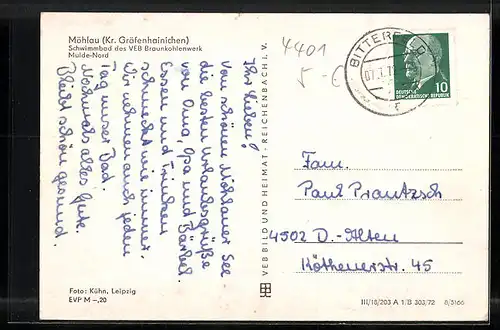 Möhlau (Kr. Gräfenhainichen)
Schwimmbad des VEB Braunkohlenwerk
Mulde-Nord
Ihr Lieben!
Vom schönen Möhlauer See
die besten Urlaubsgrüße
von Oma, Opa und Bärbel.
Essen und Trinken
schmeckt wie immer.
Wir nehmen auch jeden
Tag unser Bad.
Nochmals alles Gute.
Bleibt schön gesund.
Foto: Kühn, Leipzig
EVP M -,20
VEB BILD UND HEIMAT · REICHENBACH i. V.
4401
5-
BITTERF
DEUTSCHE
DEMOKRATISCHE REPUBLIK
10
Fam.
Paul Prautzsch
4502 D.-Alten
Köthenerstr. 45
III/18/203 A 1/B 303/72 8/5166